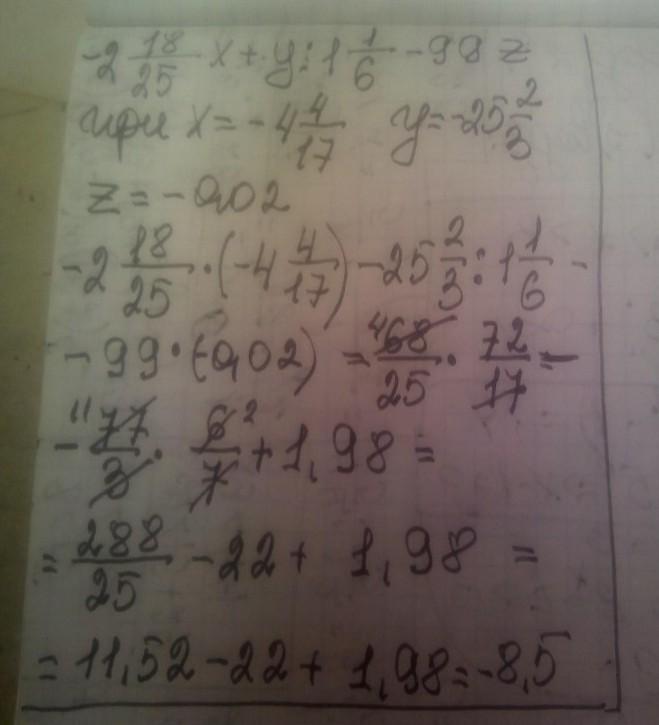 -2 18/25 x + y : 1 1/6 - 99 z
при x = -4 4/17 y = -25 2/3
z = -0,02
-2 18/25 · (-4 4/17) - 25 2/3 : 1 1/6 -
- 99 · (-0,02) = 4 68/25 · 72/17 -
- 11 77/3 · 6 2/7 + 1,98 =
= 288/25 - 22 + 1,98 =
= 11,52 - 22 + 1,98 = -8,5